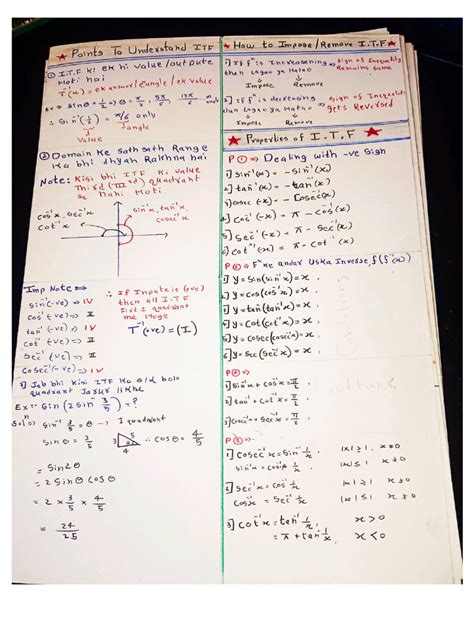 Points To Understand ITF
1 I.T.F ki ek hi value/outpute
Hoti hai
T⁻¹(x) = ek answer/∠angle/ek value
Ex⇒ sinθ = 1/2 ⇒ θ = π/6, 5π/6
∴ sin⁻¹(1/2) = π/6 only
Value
∠angle
2 Domain Ke sath sath Range
Ka bhi dhyan Rakhna hai
Note: Kisi bhi ITF Ki value
Third (IIIrd) quadrant
se Nahi Hoti.
cos⁻¹x, sec⁻¹x
cot⁻¹x
sin⁻¹x, tan⁻¹x
cosec⁻¹x
Imp Note ⇒
sin⁻¹(-ve) ⇒ IV
cos⁻¹(-ve) ⇒ II
tan⁻¹(-ve) ⇒ IV
cot⁻¹(-ve) ⇒ II
sec⁻¹(-ve) ⇒ II
cosec⁻¹(-ve) ⇒ IV
∴ If Inpute is (+ve)
then all I.T.F
First I quadrant
me Hoge
T⁻¹(+ve) = (I)
3] Jab bhi Kisi ITF Ka old bolo
quadrant Jarur likhe
Ex:- Sin(2 sin⁻¹ 3/5) = ?
Soln⇒ sin⁻¹ 3/5 = θ → I quadrant
sin θ = 3/5
5
3
4
∴ cos θ = 4/5
= Sin2θ
= 2 Sin θ cos θ
= 2 × 3/5 × 4/5
= 24/25
How to Impose/Remove I.T.F
1] If f⁻¹ is Increasening
then Lagao ya Hatao
⇒ sign of Inequality
Remains same
Impose
Remove
2] If f⁻¹ is decreasing
then Lagao ya Hatao
⇒ sign of Inequality
gets Reversed
Impose
Remove
Properties of I.T.F
P① ⇒ Dealing with -ve sign
1] sin⁻¹(-x) = - sin⁻¹(x)
2] tan⁻¹(-x) = - tan⁻¹(x)
3] cosec⁻¹(-x) = - cosec⁻¹(x)
4] cot⁻¹(-x) = π - cos⁻¹(x)
5] sec⁻¹(-x) = π - sec⁻¹(x)
6] cot⁻¹(-x) = π - cot⁻¹(x)
P② ⇒ Fⁿ ke andar Uska Inverse, f(f⁻¹(x))
1] y = sin(sin⁻¹x) = x,
2] y = cos(cos⁻¹x) = x,
3] y = tan(tan⁻¹x) = x,
4] y = cot(cot⁻¹x) = x,
5] y = cosec(cosec⁻¹x) = x,
6] y = sec(sec⁻¹x) = x,
1] sin⁻¹x + cos⁻¹x = π/2
2] tan⁻¹ + cot⁻¹ = π/2
3] cosec⁻¹x + sec⁻¹x = π/2
1] cosec⁻¹x = sin⁻¹ 1/x |x| ≥ 1
2] sec⁻¹x = cos⁻¹ 1/x |x| ≥ 1
cos⁻¹x = sec⁻¹ 1/x
3] cot⁻¹x = tan⁻¹ 1/x, x > 0
= π + tan⁻¹ 1/x, x < 0